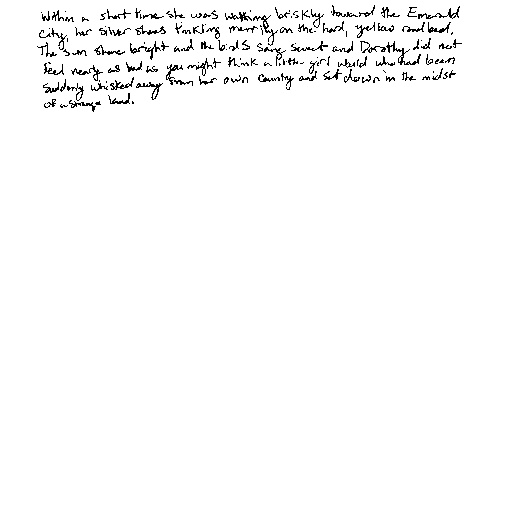 Within a short time she was walking briskly toward the Emerald
City, her silver shoes tinkling merrily on the hard, yellow roadbed.
The sun shone bright and the birds sang sweet and Dorothy did not
feel nearly as bad as you might think a little girl would who had been
suddenly whisked away from her own country and set down in the midst
of a strange land.